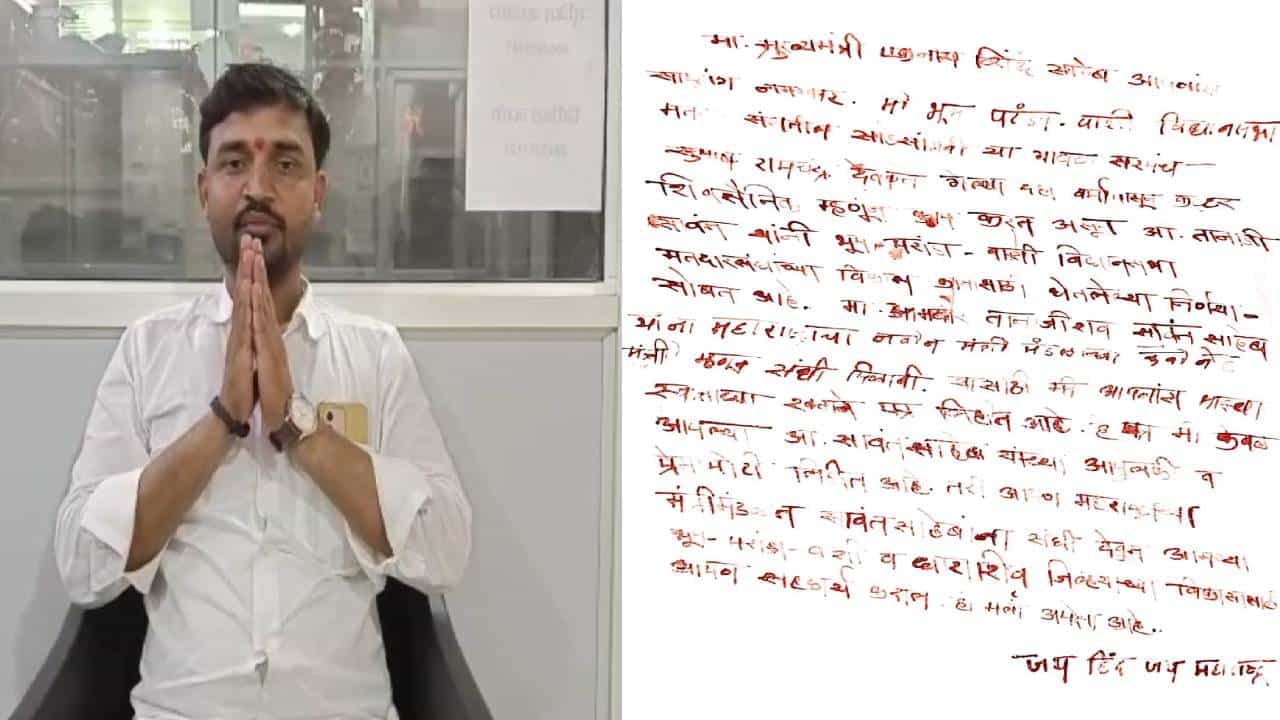 मा. मुख्यमंत्री एकनाथ शिंदे साहेब आपणांस
साष्टांग नमस्कार. मी भूम परंडा - वाशी विधानसभा
सरपंच -
रामचंद्र देवकते गेल्या दहा वर्षापासून कट्टर
शिवसैनिक म्हणून काम करत असून आ. तानाजी
सावंत यांनी भूम - परांडा - वाशी विधानसभा
मतदारसंघाच्या विकास कामासाठी घेतलेल्या निर्णया -
सोबत आहे. मा. तानाजीराव सावंत साहेब
यांना महाराष्ट्राच्या नवीन मंत्री मंडळाच्या कॅबीनेट
मंत्री म्हणून संधी मिळावी. यासाठी मी आपणांस माझ्या
स्वतःच्या रक्ताने पत्र लिहीत आहे. हे पत्र मी केवळ
आपल्या आ. सावंत साहेब यांच्या आपुलकी व
प्रेमापोटी लिहीत आहे. तरी आपण महाराष्ट्राच्या
मंत्रीमंडळात सावंत साहेबांना संधी देवुन आमच्या
भूम - परांडा - वाशी व धाराशिव जिल्ह्याच्या विकासासाठी
आपण सहकार्य कराल. ही मला अपेक्षा आहे..
जय हिंद जय महाराष्ट्र